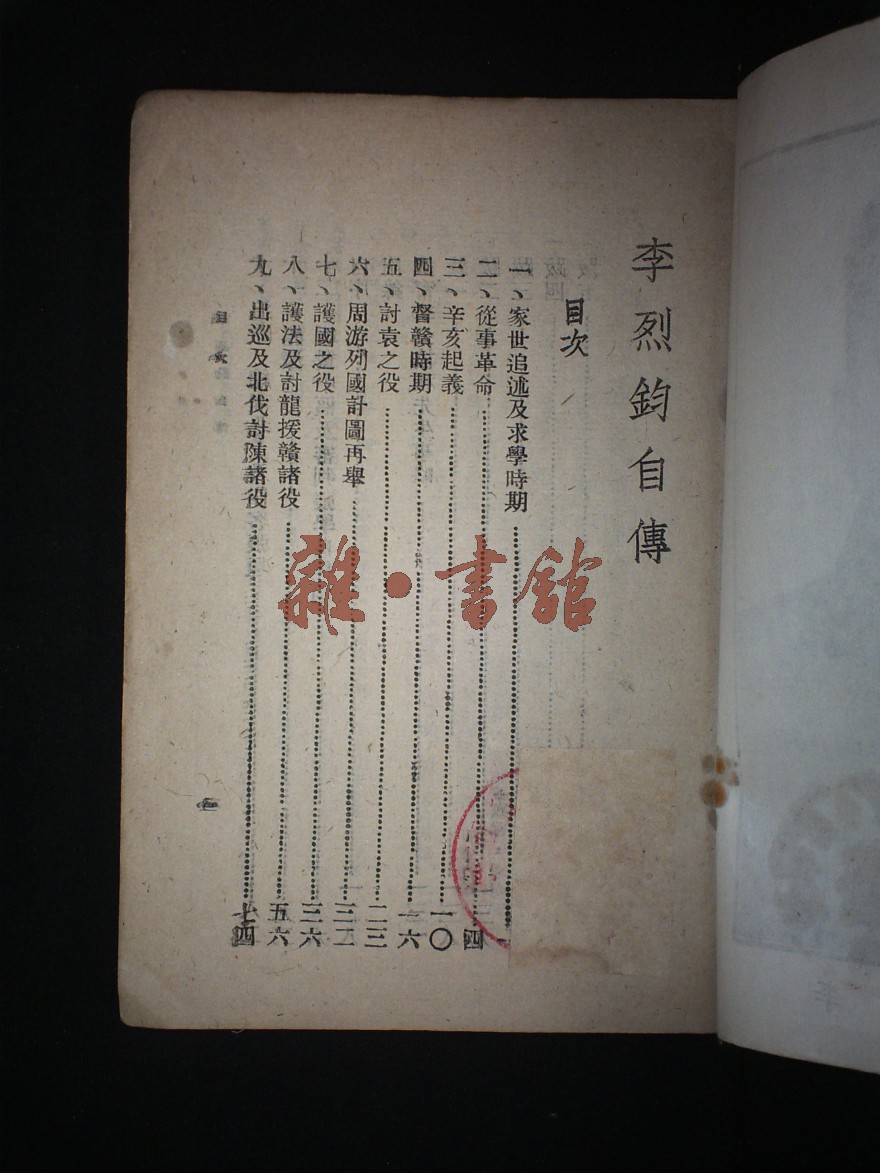 李烈鈞自傳
目次
一、家世追述及求學時期………一
二、從事革命………四
三、辛亥起義………一〇
四、督贛時期………一六
五、討袁之役………二三
六、周游列國計圖再舉………三二
七、護國之役………三六
八、護法及討龍援贛諸役………五六
九、出巡及北伐討陳諸役………七四
目次
一
雜·書館